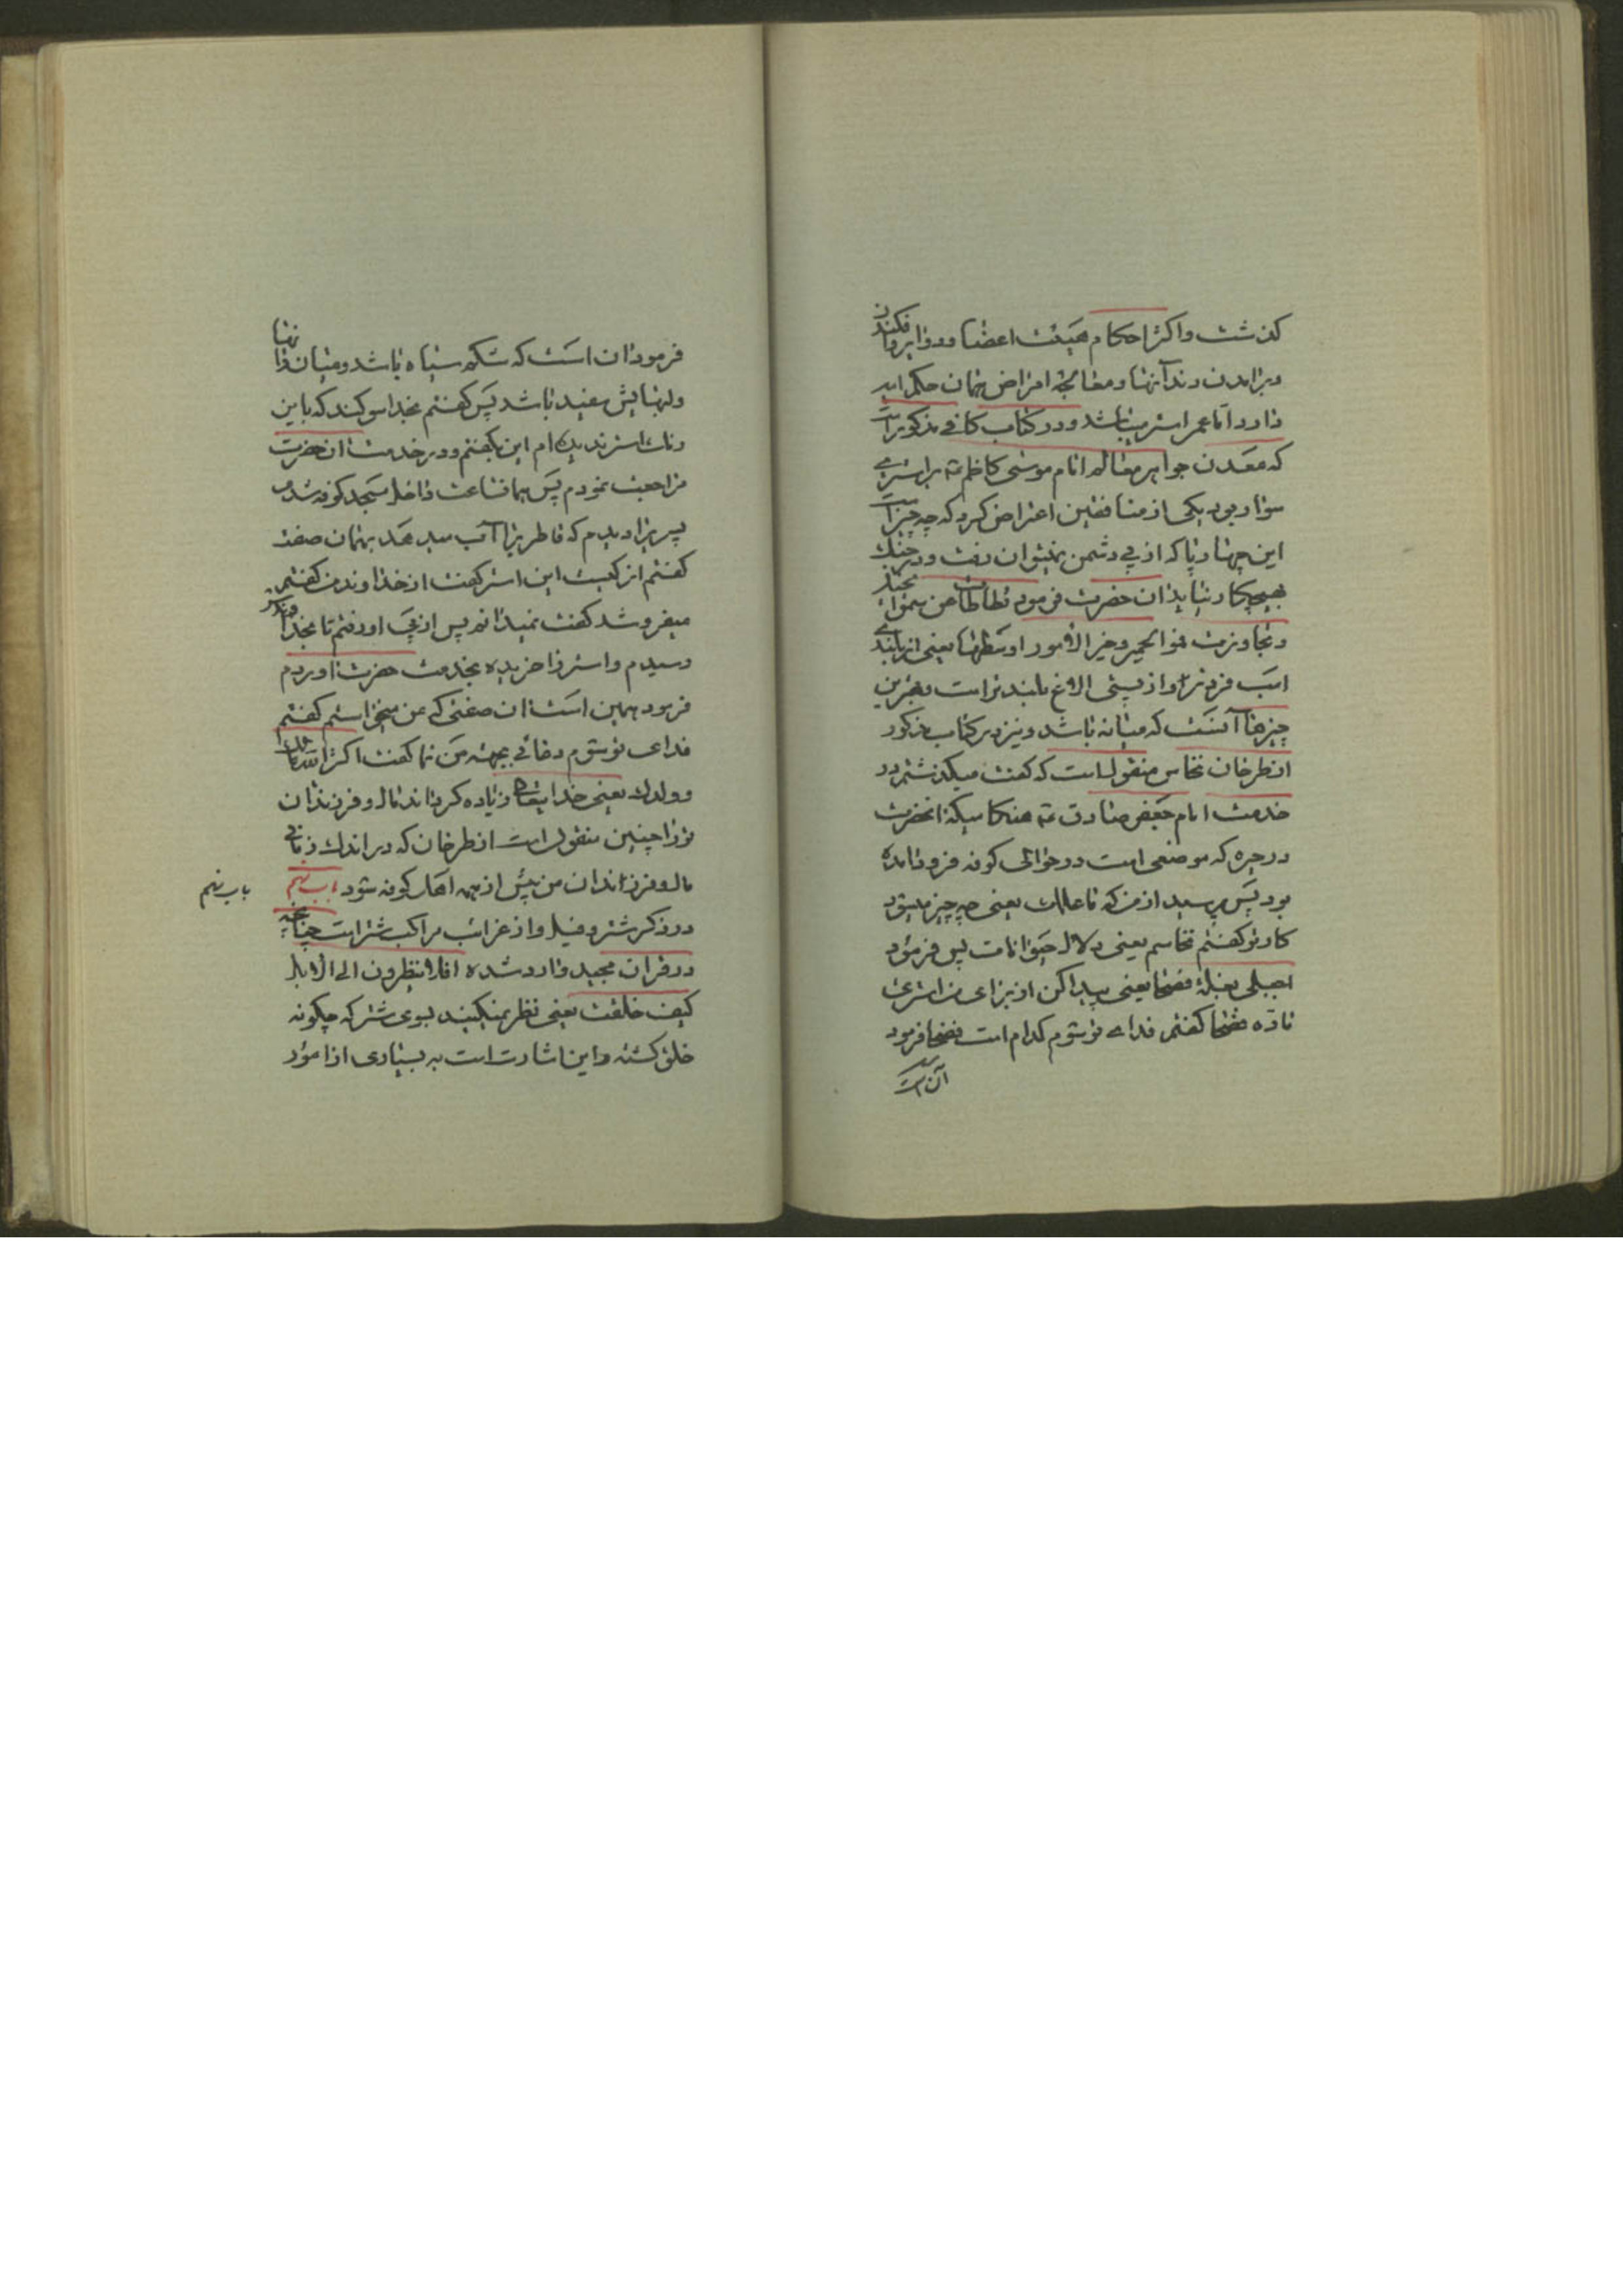 گذشت و اکثر احکام هیئت اعضا و دوایر و افکندن
و برآمدن دندانها و معالجه امراض همان حکم اسب
دارد اما عمر استر میباشد و در کتاب کافی مذکور است
که معدن جواهر معالم امام موسی کاظم ع بر استری
سوار بود یکی از منافقین اعتراض کرد که چه چیز است
این چهارپا که از پی دشمن نمیتوان رفت و در جنگ
بهیچ کار نیاید آن حضرت فرمود تطاطات عن سمو الخیل
و تجاوزت قموا الحمیر و خیر الامور اوسطها یعنی از بلندی
اسب فروتر و از پستی الاغ بلندتر است و بهترین
چیزها آنست که میانه باشد و نیز در کتاب مذکور
از طرخان نخاس منقول است که گفت میگذشتم در
خدمت امام جعفر صادق ع هنگامیکه آنحضرت
در حیره که موضعی است در حوالی کوفه فرود آمده
بود پس پرسید از من که ما علاجک یعنی چه چیز میشود
کار تو گفتم نخاسم یعنی دلال حیوانات پس فرمود
اصبلی بغلة فضحا یعنی پیدا کن از برای من استری
ماده فضحا گفتم فدای تو شوم کدام است فضحا فرمود
آن است
فرمود آن است که شکم سیاه باشد و میان رانها
و لبهایش سفید باشد پس گفتم بخدا سوگند که باین
استر ندیده‌ام این بگفتم و در خدمت آن حضرت
مراجعت نمودم پس همان ساعت داخل مسجد کوفه شدم
پسری را دیدم که قاطری را آب میدهد بهمان صفت
گفتم از کیست این استر گفت از خداوند من گفتم
میفروشد گفت نمیدانم پس از پی او رفتم تا بخداوندش
رسیدم و استر را خریده بخدمت حضرت آوردم
فرمود همین است آن صفتی که من میخواستم گفتم
فدای تو شوم دعائی بجهت من نما گفت اکثر الله مالک
و ولدک یعنی خدایتعالی زیاده گرداند مال و فرزندان
تو را چنین منقول است از طرخان که در اندک زمانی
مال و فرزندان من بیش از همه اهل کوفه شود باب نهم
باب نهم
در ذکر شتر و فیل و از غرائب مراکب شتر است چنانچه
در قرآن مجید وارد شده افلا ینظرون الی الابل
کیف خلقت یعنی نظر نمیکنند بسوی شتر که چگونه
خلق گشته و این اشارت است به بسیاری از امور